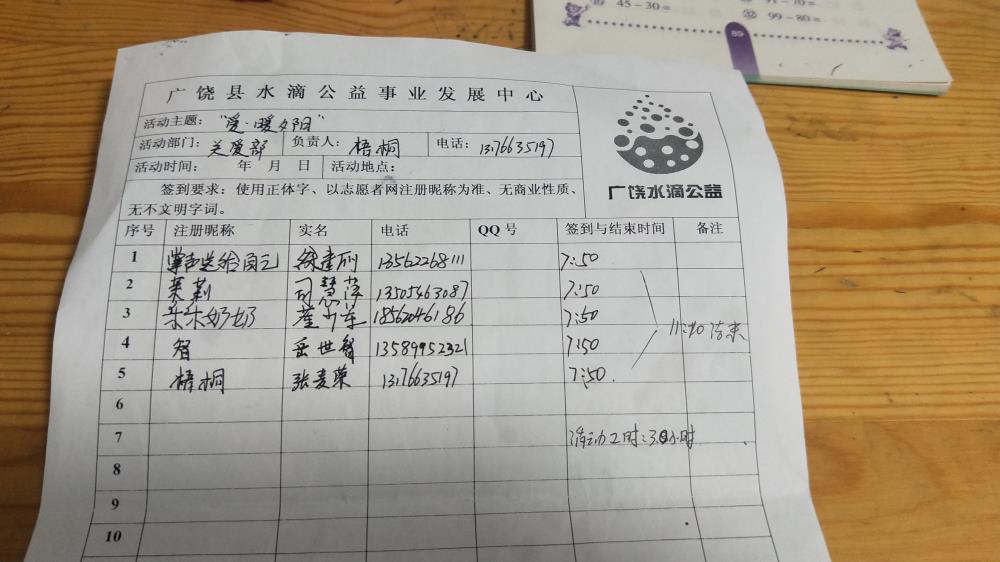 45-30=
99-80=
89
广饶县水滴公益事业发展中心
活动主题: "爱·暖夕阳"
活动部门: 关爱部 负责人: 梧桐 电话: 13176635197
活动时间: 年 月 日 活动地点:
签到要求: 使用正体字、以志愿者网注册昵称为准、无商业性质、
无不文明字词。
广饶水滴公益
序号 注册昵称 实名 电话 QQ号 签到与结束时间 备注
1 掌声送给自己 徐建丽 13562268111 7:50
2 茉莉 司慧萍 13505463087 7:50
3 朵朵奶奶 18562046186 7:50
11:40 结束
4 智 岳世智 13589952321 7:50
5 梧桐 张麦荣 13176635197 7:50.
6
7 活动工时:3.8小时
8
9
10